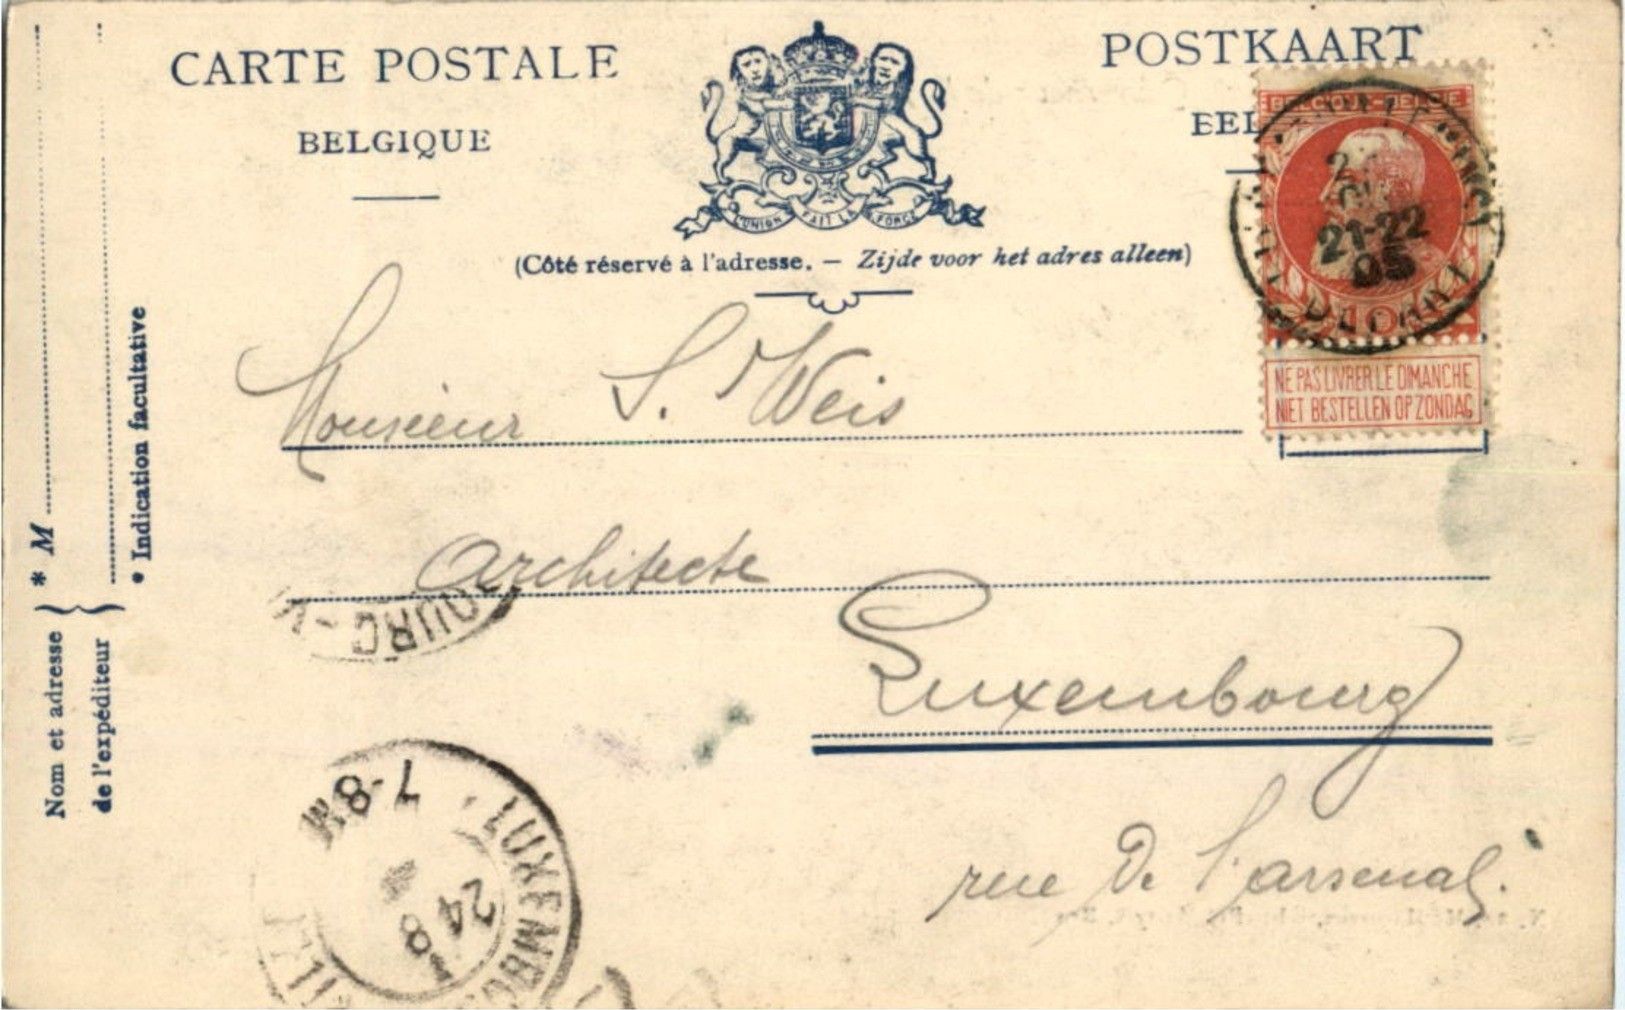 CARTE POSTALE
BELGIQUE
POSTKAART
BEL
L'UNION FAIT LA FORCE
(Côté réservé à l'adresse. — Zijde voor het adres alleen)
BELGIQUE-BELGIE
21-22
05
10
NE PAS LIVRER LE DIMANCHE
NIET BESTELLEN OP ZONDAG
Monsieur S. Weis
Architecte
Luxembourg
rue de l'arsenal.
* M
Nom et adresse
de l'expéditeur
* Indication facultative
OURG-V
LUXEMBOU
7-8M
24
8